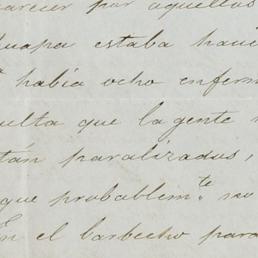 parecer por aquellos
estaba haci
había ocho enferm
ulta que la gente
tán paralizados,
que probablem.te no
En el barbecho para